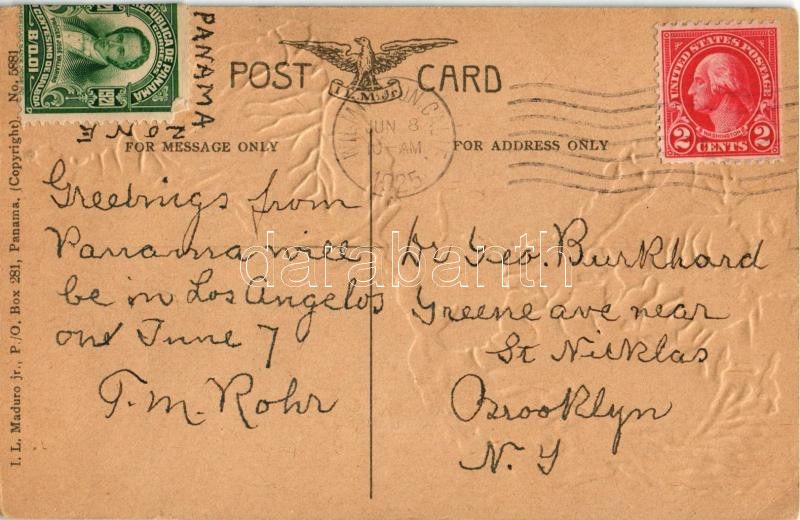 REPUBLICA DE PANAMA
B/0.01
PANAMA
ZONE
POST CARD
I.L.M. Jr.
FOR MESSAGE ONLY
FOR ADDRESS ONLY
JUN 8
AM
1925
UNITED STATES POSTAGE
WASHINGTON
2 CENTS 2
Greetings from
Panama will
be in Los Angelos
on June 7
T. M. Rohr
Dr Geo. Burkhard
Greene ave near
St Nicklas
Brooklyn
N. Y
I. L. Maduro jr., P./O. Box 281, Panama, (Copyright). No. 5881
darabanth